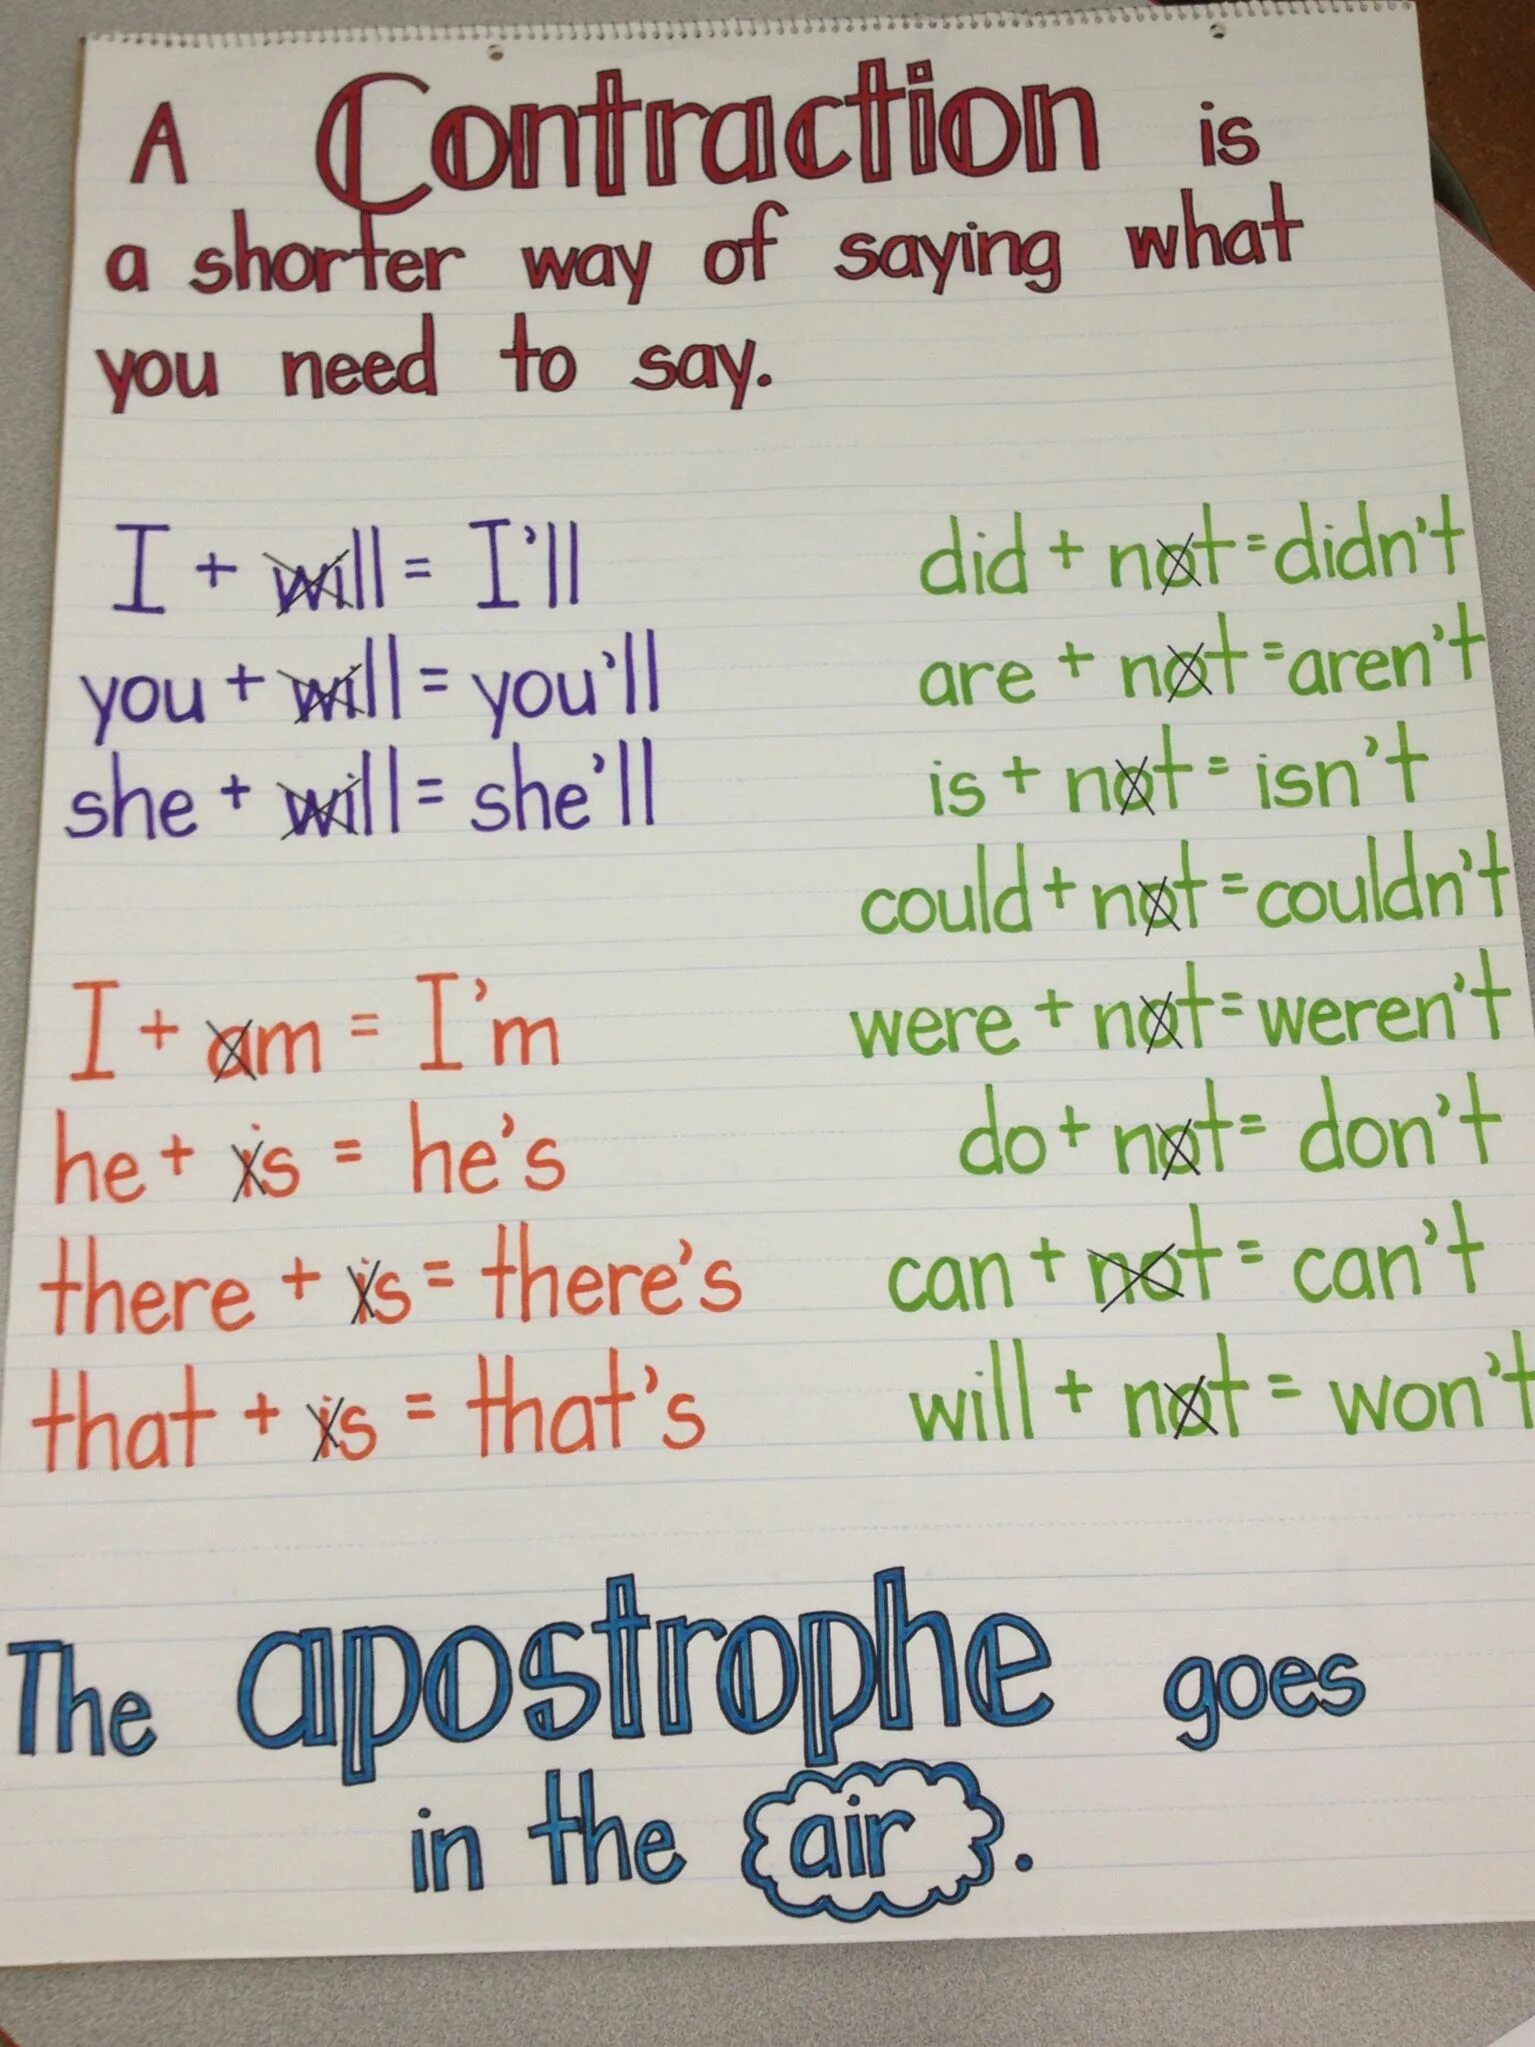 A Contraction is
a shorter way of saying what
you need to say.
I + will = I'll
you + will = you'll
she + will = she'll
I + am = I'm
he + is = he's
there + is = there's
that + is = that's
did + not = didn't
are + not = aren't
is + not = isn't
could + not = couldn't
were + not = weren't
do + not = don't
can + not = can't
will + not = won't
The apostrophe goes
in the air.